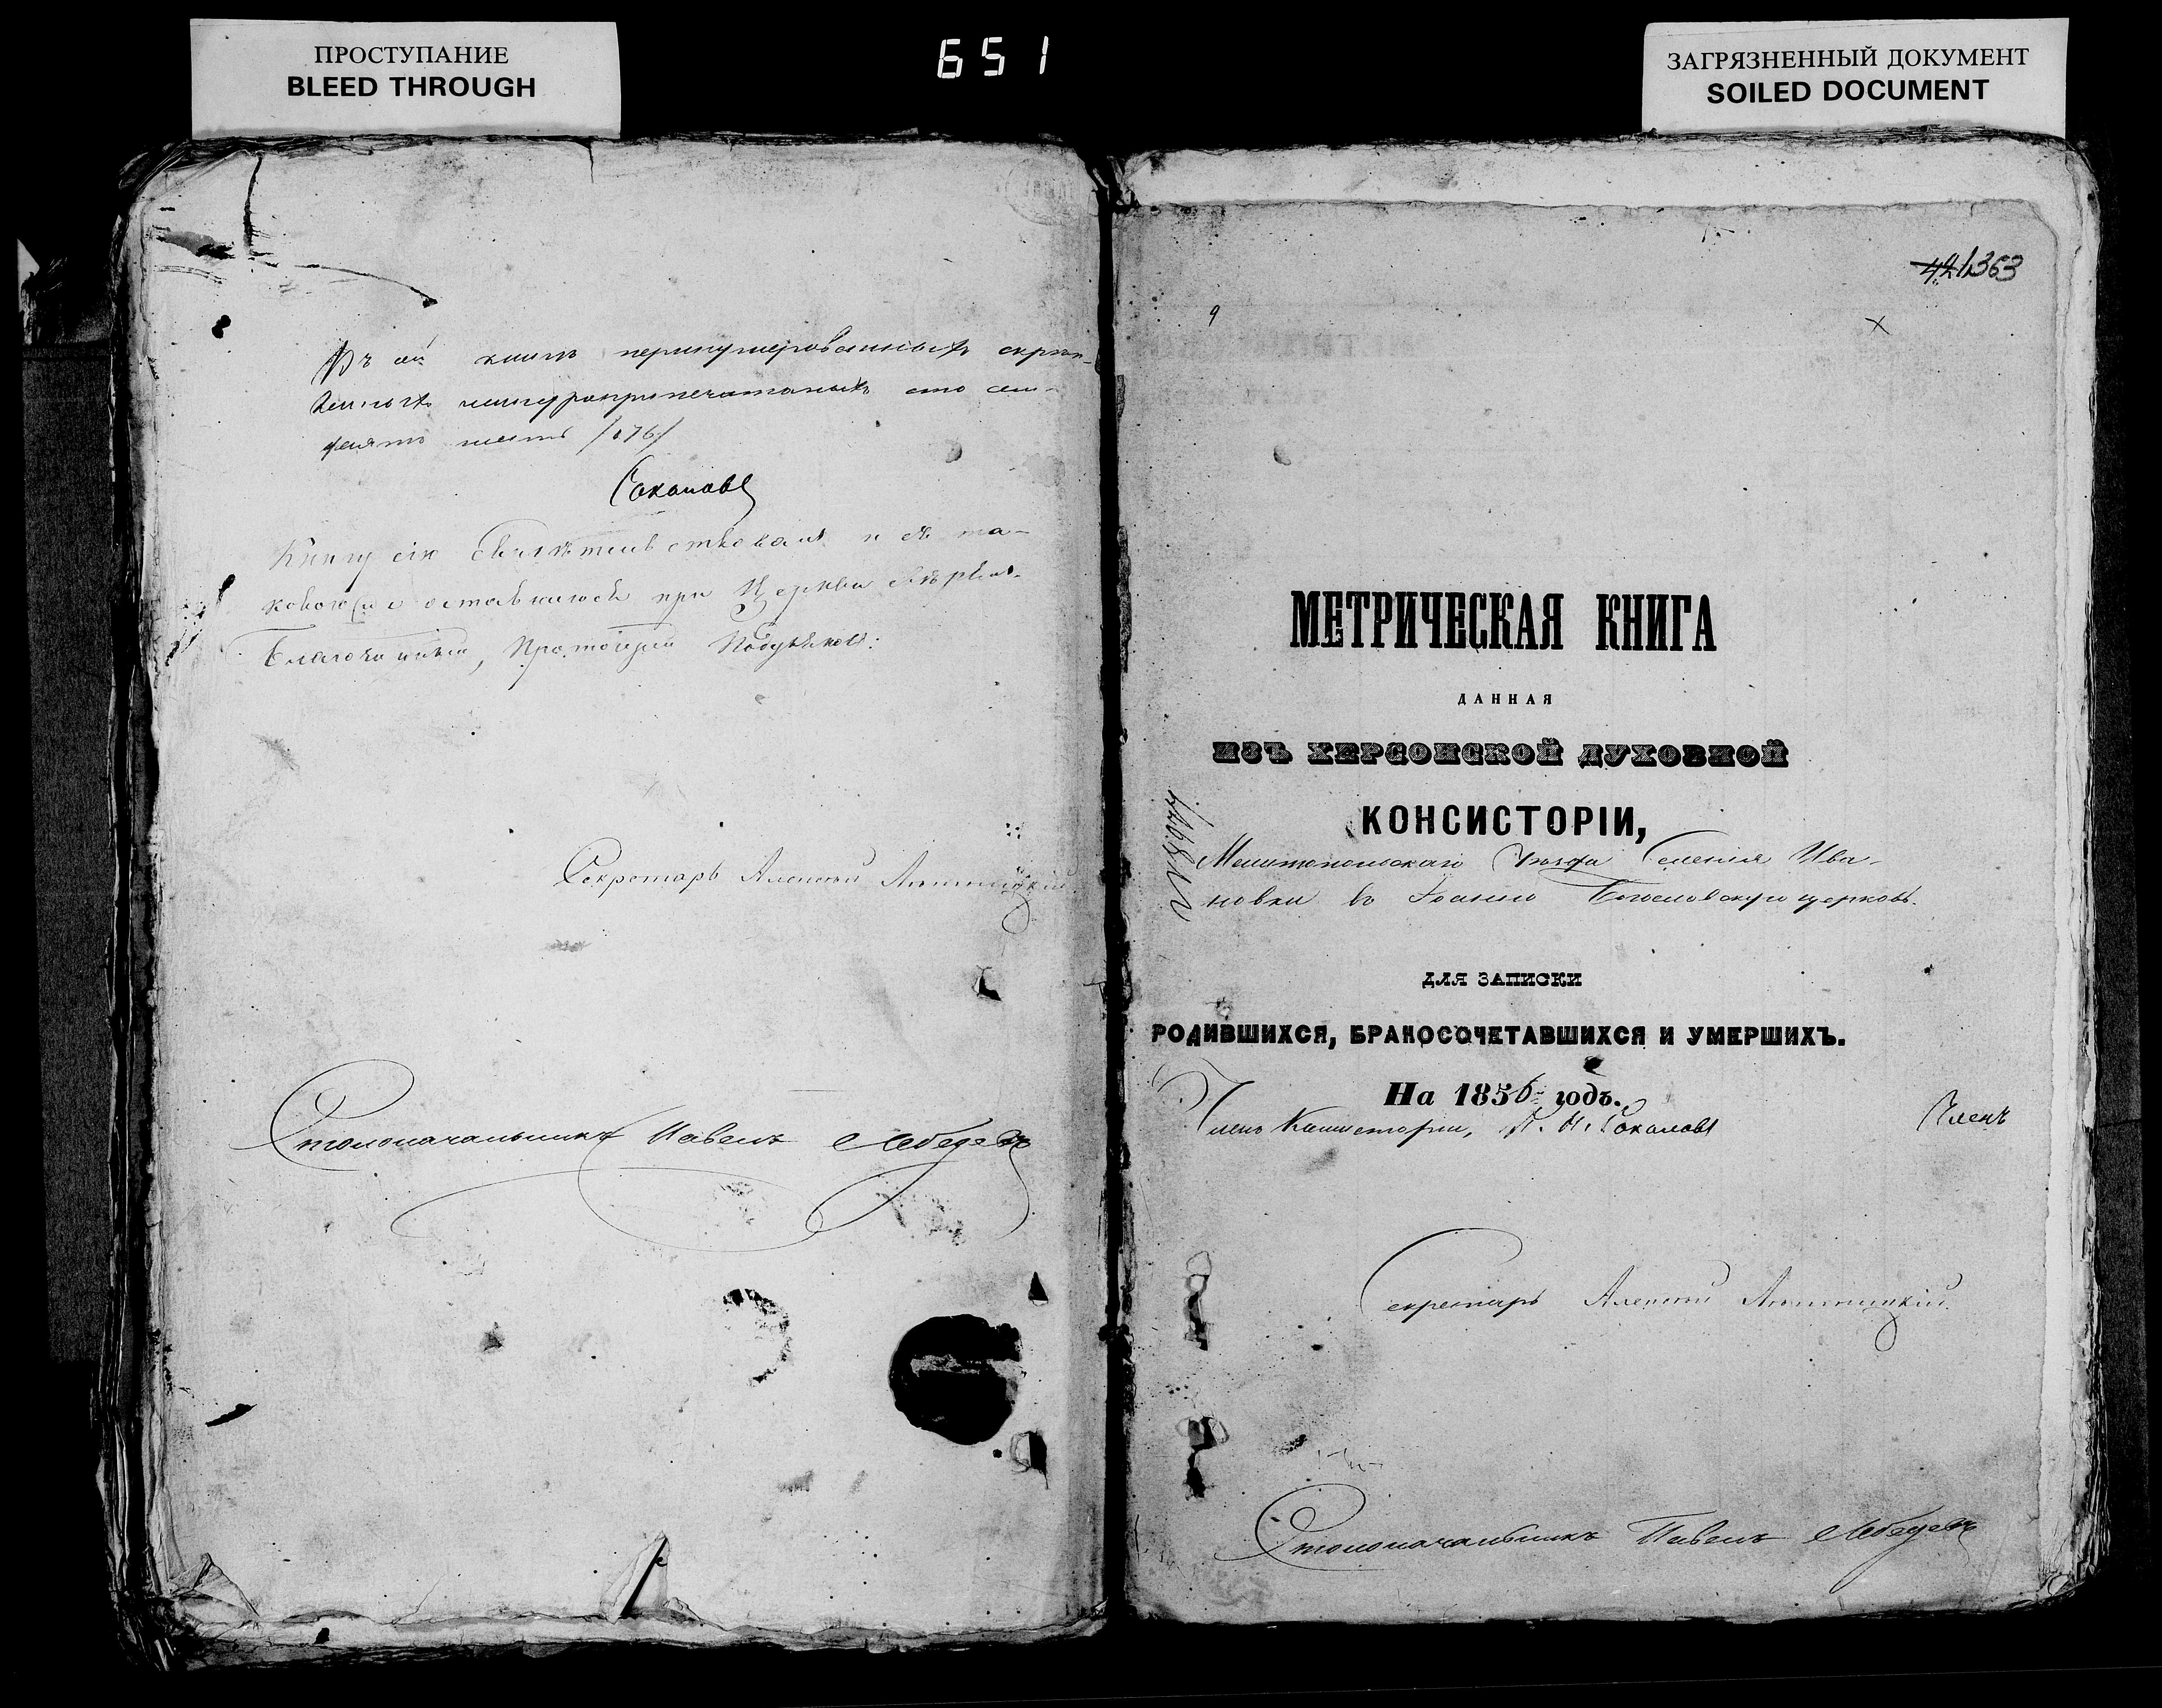 ПРОСТУПАНИЕ
BLEED THROUGH
651
ЗАГРЯЗНЕННЫЙ ДОКУМЕНТ
SOILED DOCUMENT
перенумерованныхъ скрѣп-
ленныхъ шнуроприпечатаныхъ сто сем-
десятъ шесть /176/
Соколовъ
Книгу сію свидѣтельствовалъ и съ та-
ковою же оставшеюся при Церкви вѣрна.
Благочинный, Протоіерей
Секретарь Алексѣй
Столоначальникъ Павелъ Лебедевъ
363
9
х
МЕТРИЧЕСКАЯ КНИГА
ДАННАЯ
ИЗЪ ХЕРСОНСКОЙ ДУХОВНОЙ
КОНСИСТОРІИ,
Мелитопольскаго Уѣзда Селенія Ива-
новки въ Іоанно Богословскую церковь.
ДЛЯ ЗАПИСКИ
РОДИВШИХСЯ, БРАКОСОЧЕТАВШИХСЯ И УМЕРШИХЪ.
На 1856 годъ.
Членъ Консисторіи, П. И. Соколовъ
Членъ
Секретарь Алексѣй
Столоначальникъ Павелъ Лебедевъ